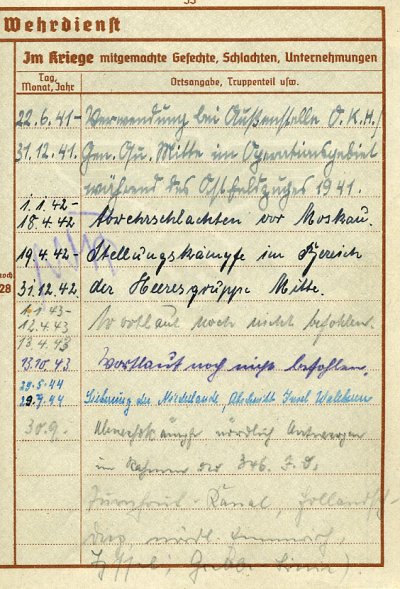 33
Wehrdienst
Im Kriege mitgemachte Gefechte, Schlachten, Unternehmungen
Tag, Monat, Jahr
Ortsangabe, Truppenteil usw.
22.6.41- Verwendung bei Außenstelle O.K.H./
31.12.41. Gen. Qu. Mitte im Operationsgebiet
während des Ostfeldzuges 1941.
1.1.42-
18.4.42 Abwehrschlachten vor Moskau.
19.4.42- Stellungskämpfe im Bereich
noch
28
31.12.42 der Heeresgruppe Mitte.
1.1.43-
12.4.43 Wortlaut noch nicht befohlen.
13.4.43
13.10.43 Wortlaut noch nicht befohlen.
29.5.44
29.9.44 Sicherung der Niederlande, Abschnitt Insel Walcheren
30.9. Abwehrkämpfe nördlich Antwerpen
im Rahmen der 346. J.D.
Turnhout-Kanal,
nördl. Emmerich,